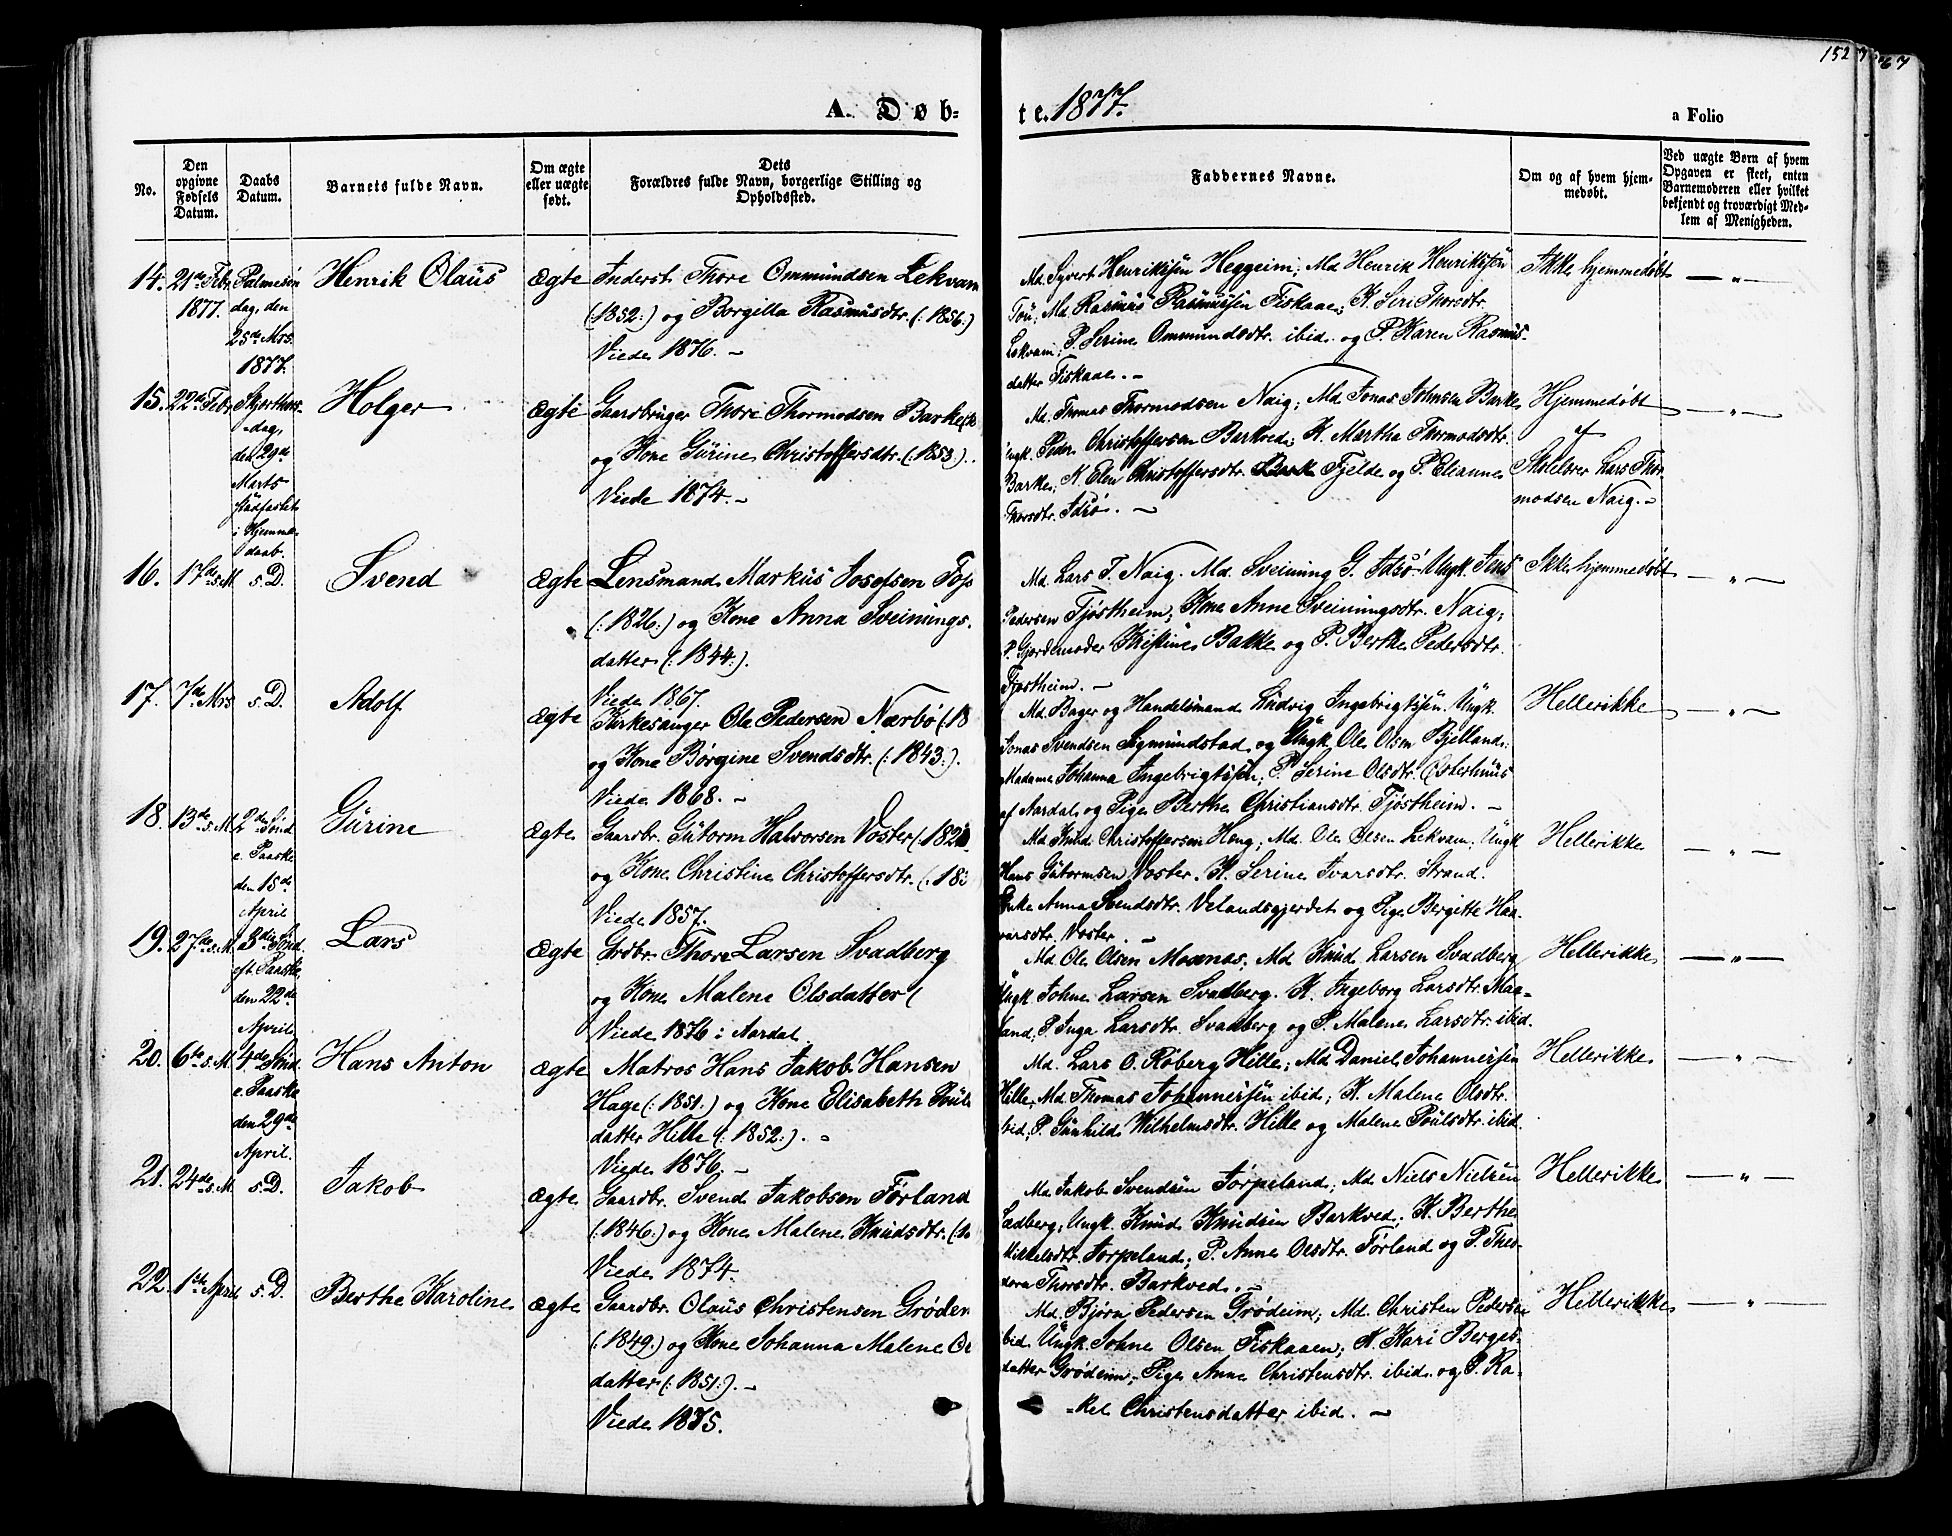 152
67
A. Døb-
te. 1877.
a Folio
No.
Den opgivne Fødsels Datum.
Daabs Datum.
Barnets fulde Navn.
Om ægte eller uægte født.
Dets Forældres fulde Navn, borgerlige Stilling og Opholdssted.
Faddernes Navne.
Om og af hvem hjemmedøbt.
Ved uægte Børn af hvem Opgaven er skeet, enten Barnemoderen eller hvilket bekjendt og troværdigt Medlem af Menigheden.
14.
21de Febr
1877.
Palmesøn
dag, den
25de Mrs.
1877.
Henrik Olaus
Ægte
Inderst. Thore Ommundsen Lekvam
(1852:) og Borgilla Rasmusdtr. (:1856:)
Viede 1876. -
Md. Syvert Henriksen Heggeim; Md Henrik Henriksen
Tou; Md Rasmus Rasmussen Fiskaae; K. Seri Thorsdtr.
Lekvam; P. Serine Ommundsdtr. ibid. og P. Karen Rasmus-
datter Fiskaae. -
Ikke hjemmedøbt
— " —
15.
22de Febr
Skjerthors-
dag,
den 29de
Marts
stadfæstet
i Hjemme-
daab.
Holger
Ægte
Gaardbruger Thore Thormodsen Barke
og Kone Gurine Christoffersdtr. (:1853).
Viede 1874. -
Md. Thomas Thormodsen Naig; Md Jonas Johnsen Barke
Ungk. Peder Christoffersen Barkved; K. Martha Thormodsdtr.
Barke; K. Elen Christoffersdtr. Fjelde og P. Elianne
Thorsdtr. Idsø. -
Hjemmedøbt
af
Skolelærer Lars Thor
modsen Naig. -
— " —
16.
17de s. M.
s. D.
Svend
Ægte
Lensmand Markus Josefsen
(:1826:) og Kone Anna Sveinings-
datter (:1844:).
Viede 1867.
Md. Lars T. Naig. Md. Sveining G. Idsø. Ungk. Jens
Pedersen Tjøstheim; Kone Anne Sveiningsdtr. Naig;
P. Gjordemoder Kristine Bakke og P. Berthe Pedersdtr.
Tjøstheim. -
Ikke hjemmedøbt
— " —
17.
7de Mrs
s. D.
Adolf
Ægte
Kirkesanger Ole Pedersen Nærbø (:18
og Kone Børgine Svendsdtr. (:1843:).
Viede 1868. -
Md. Bager og Handelsmand Ludvig Ingebrigtsen. Ungk.
Jonas Svendsen Sigmundstad og Ungk. Ole Olsen Bjelland;
Madame Johanna Ingebrigtsen; P. Serine Olsdtr. Østerhuus
af Aardal og Pige Berthe Christiansdtr. Tjøstheim. -
Hellerikke
— " —
18.
13de s. M.
2den Sønd
e. Paaske
den 15de
April
Gurine
Ægte
Gaardbr. Gutorm Halvorsen Voster (:182
og Kone Christine Christoffersdtr. (:183
Viede 1857.
Md. Knud Christoffersen Høng; Md. Ole Olsen Lekvam; Ungk
Hans Gutormsen Voster. K. Serine Ivarsdtr. Strand.
Enke Anna Svendsdtr. Velandsgjerdet og Pige Bergitte Haa-
varsdtr. Voster. -
Hellerikke
— " —
19.
27de s. M.
3die Sønd.
eft. Paaske
den 22de
April
Lars
Ægte
Grdbr. Thore Larsen Svadberg
og Kone Malene Olsdatter (
Viede 1876 i Aardal
Md Ole Olsen Mosnæs; Md Knud Larsen Svadberg
Ungk Johne Larsen Svadberg. K. Ingeborg Larsdtr. Maa-
land; P. Inga Larsdtr. Svadberg og P. Malene Larsdtr. ibid.
Hellerikke
— " —
20.
6te s. M.
4de Sønd.
e. Paaske
den 29de
April.
Hans Anton
Ægte
Matros Hans Jakob Hansen
Hage (:1851:) og Kone Elisabeth Pouls
datter Hille (:1852:). -
Viede 1876. -
Md. Lars O. Røberg Hille; Md Daniel Johannessen
Hille, Md. Thomas Johannessen ibid; K. Malene Olsdtr.
ibid; P. Gunhild Wilhelmsdtr. Hille og Malene Poulsdtr. ibid.
Hellerikke
— " —
21.
24de s. M.
s. D.
Jakob
Ægte
Gaardbr. Svend Jakobsen Førland
(:1846:) og Kone Malene Knudsdtr. (:
Viede 1874.
Md. Jakob Svendsen Jørpeland; Md Niels Nielsen
Ladberg; Ungk. Knud Knudsen Barkved. K. Berthe
Mikkelsdtr. Jørpeland; P. Anne Olsdtr. Førland og P. Theo-
dora Thorsdtr. Barkved. -
Hellerikke
— " —
22.
1ste April
s. D.
Berthe Karoline
Ægte
Gaardbr. Olaus Christensen Grødem
(:1849:) og Kone Johanna Malene
datter (:1851:). -
Viede 1875.
Md. Bjørn Pedersen Grødeim; Md. Christen Pedersen
ibid. Ungk. Johne Olsen Fiskaaen; K. Kari Berges-
datter Grødeim; Pige Anne Christensdtr. ibid. og P. Ra-
kel Christensdatter ibid. -
Hellerikke
— " —